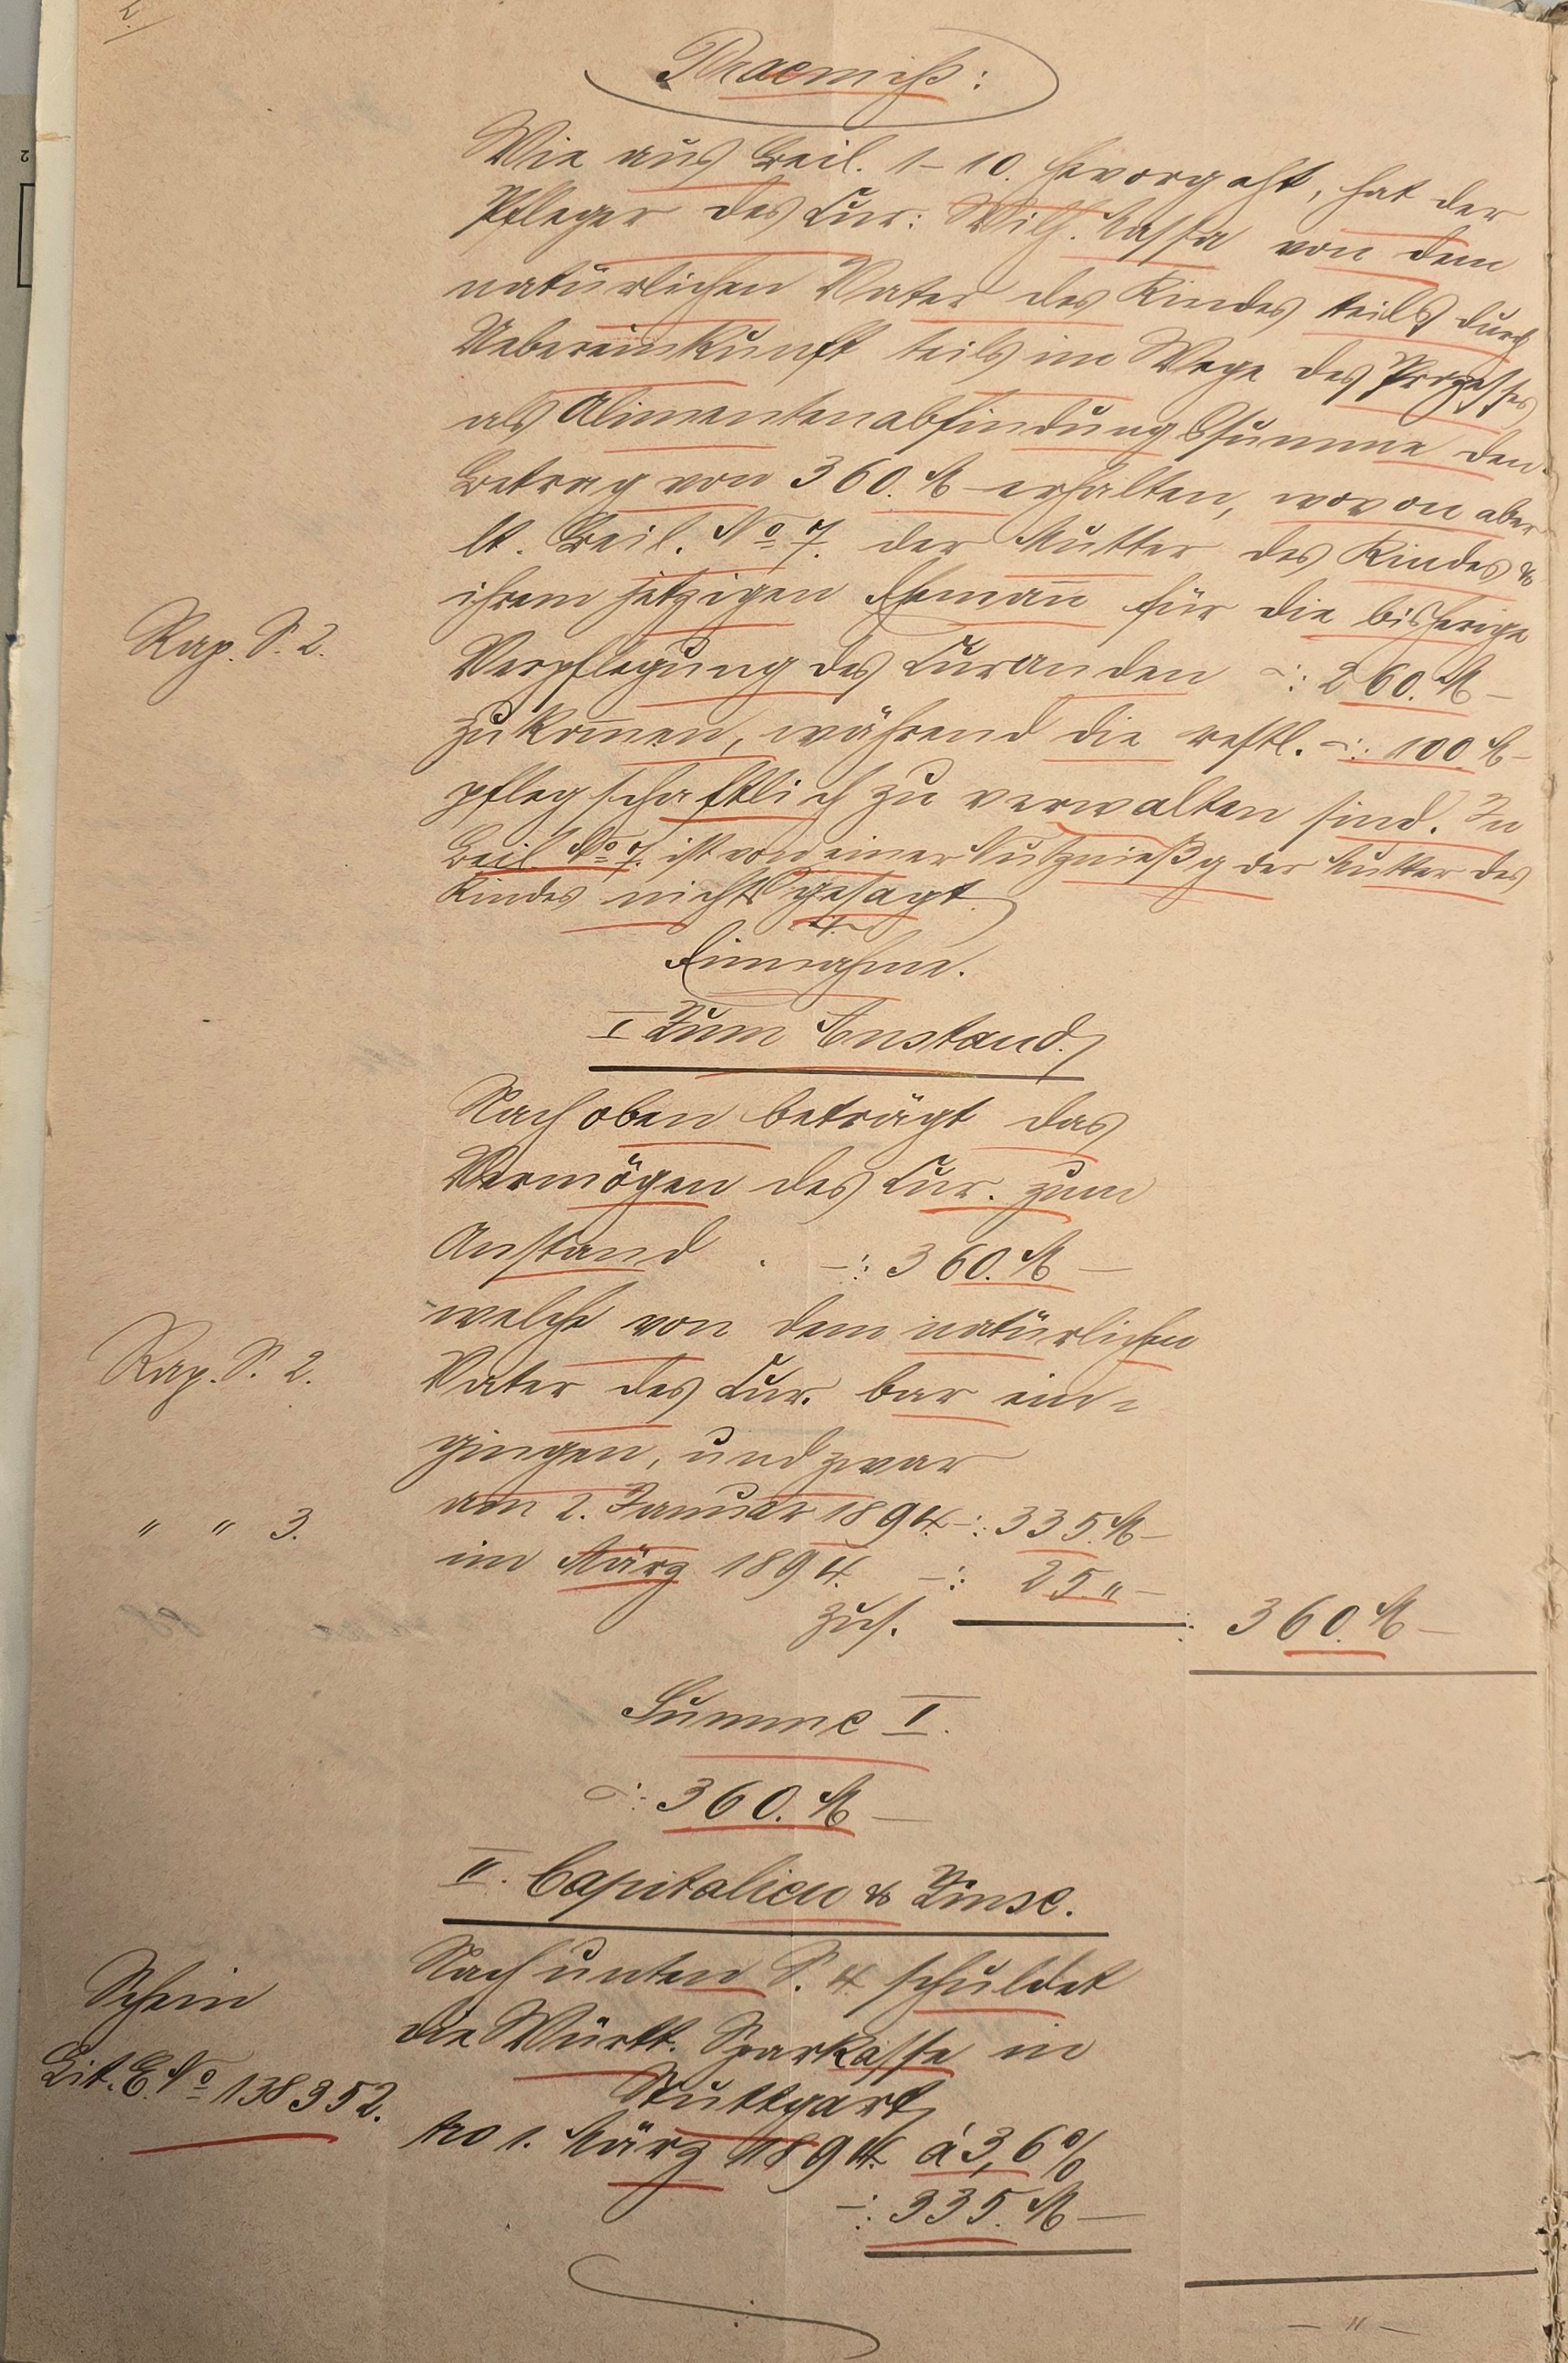 2.
Praemiss:
Wie aus Beil. 1–10. hervorgeht, hat der
Pfleger des Cur: Wilh. von dem
natürlichen Vater des Kindes teils durch
Uebereinkunft teils im Wege des Prozesses
als Alimentenabfindungssumme den
Betrag von 360. M – erhalten, wovon aber
lt. Beil. No 7. der Mutter des Kindes &
ihrem jetzigen Ehemann für die bisherige
Rap. S. 2.
Verpflegung des Curanden –: 260. M –
zukommen, während die restl. –: 100 M –
pflegschaftlich zu verwalten sind. In
Beil. No 7. ist von einer Nutznießg der Mutter des
Kindes nichts gesagt.
Einnahme.
I Zum Anstand.
Nach oben beträgt das
Vermögen des Cur. zum
Anstand . –: 360. M –
welche von dem natürlichen
Rap. S. 2.
Vater des Cur. bar ein-
gingen, und zwar
am 2. Januar 1894. –: 335. M –
" " 3.
im März 1894. –: 25. " –
zus. : 360. M –
Summe I.
–: 360. M –
II. Capitalien & Zinse.
Nach unten S. 4 schuldet
Schein
die Württ. Sparkasse in
Lit. E. No 138352.
Stuttgart
pro 1. März 1894. à 3,6 %
–: 335. M –
– " –